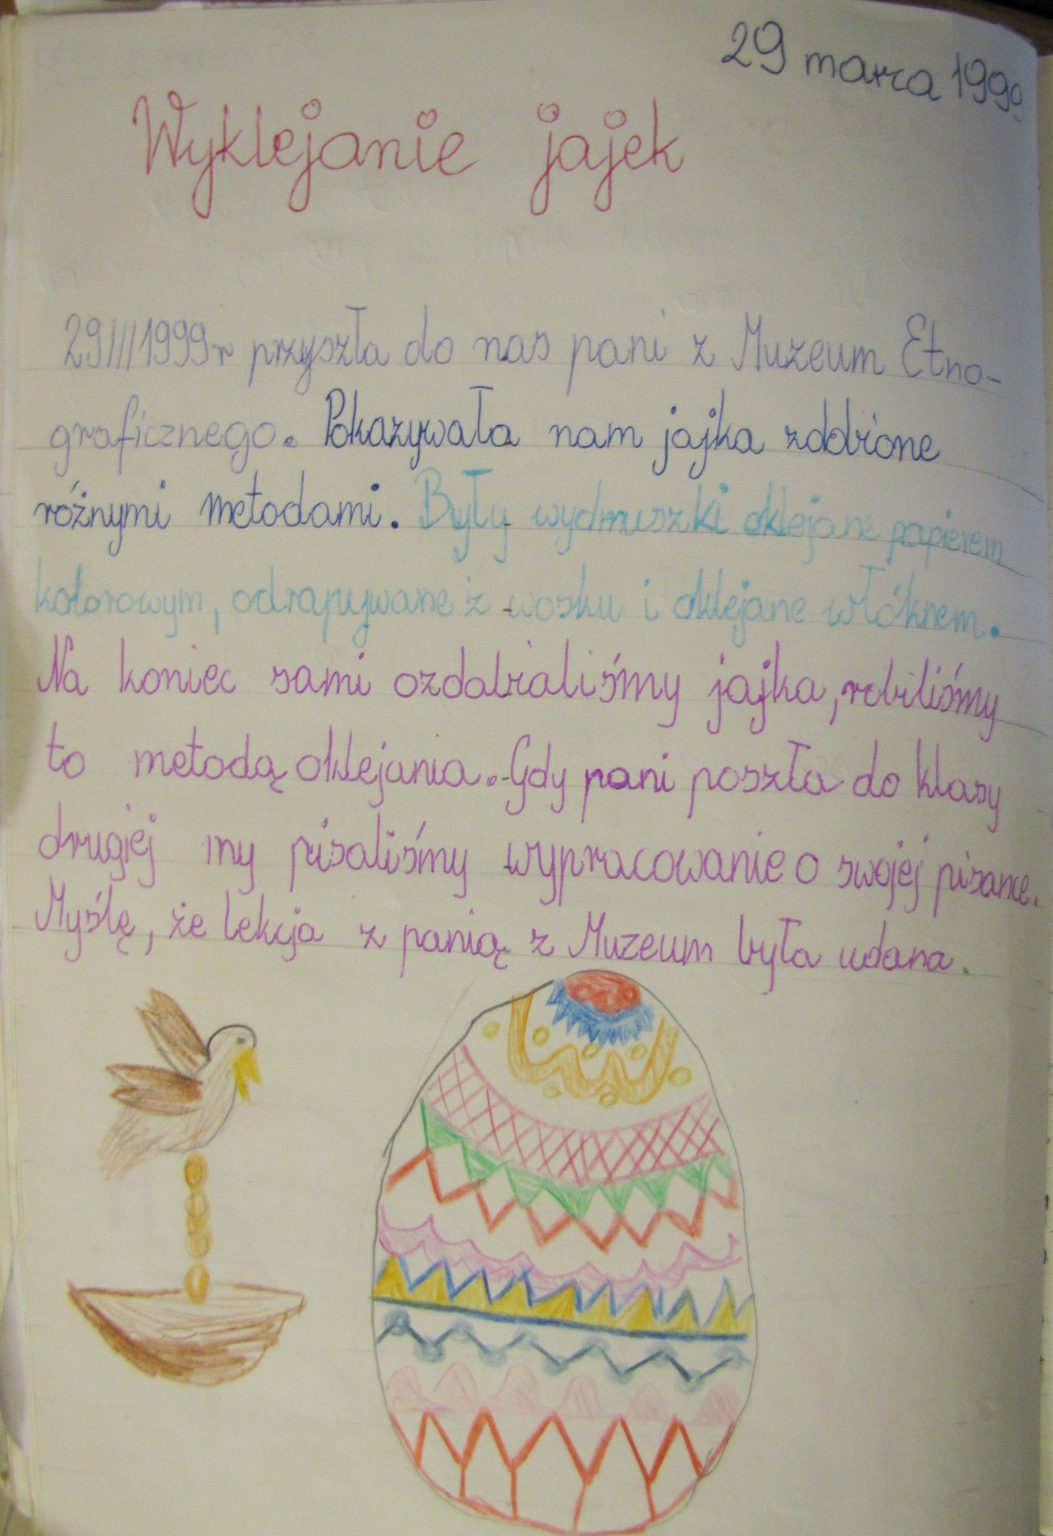 29 marca 1999
Wyklejanie jajek
29III1999r przyszła do nas pani z Muzeum Etno-
graficznego. Pokazywała nam jajka zdobione
różnymi metodami. Były wydmuszki oklejane papierem
kolorowym, odrapywane z wosku i oklejane włóknem.
Na koniec sami ozdabialiśmy jajka, robiliśmy
to metodą oklejania. Gdy pani poszła do klasy
drugiej my pisaliśmy wypracowanie o swojej pisance.
Myślę, że lekcja z panią z Muzeum była udana.